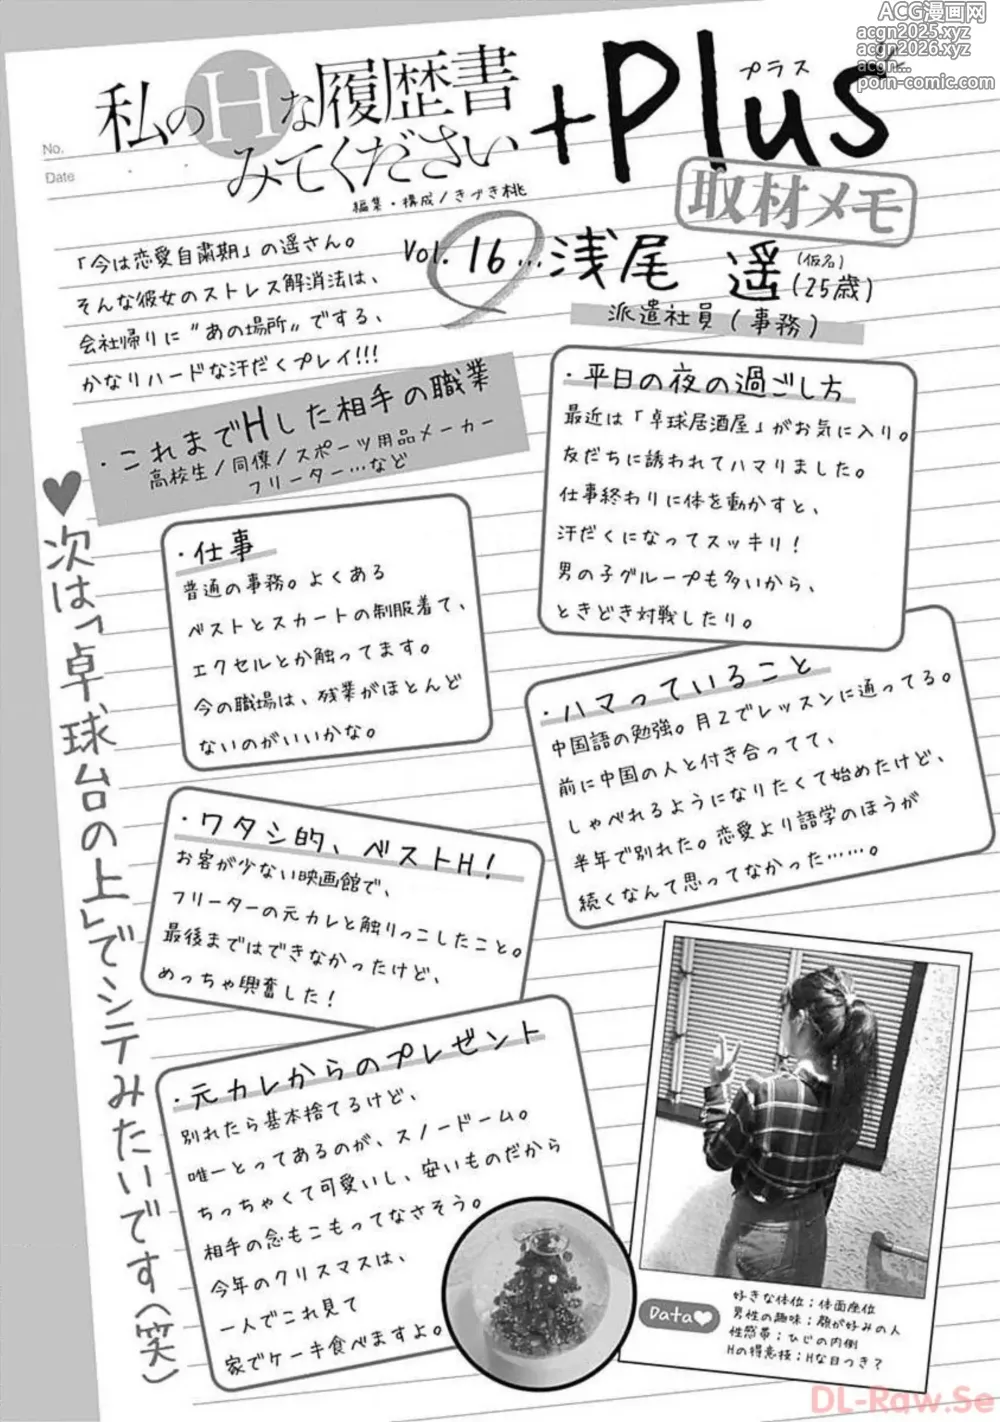 ACG漫画网
acgn2025.xyz
acgn2026.xyz
acgn...
porn-comic.com
No.
Date
私のHな履歴書
みてください
+Plus
プラス
編集・構成/きづき桃
取材メモ
Vol.16…浅尾 遥
(仮名)
(25歳)
派遣社員(事務)
「今は恋愛自粛期」の遥さん。
そんな彼女のストレス解消法は、
会社帰りに〝あの場所〟でする、
かなりハードな汗だくプレイ!!!
・これまでHした相手の職業
高校生/同僚/スポーツ用品メーカー
フリーター…など
・平日の夜の過ごし方
最近は「卓球居酒屋」がお気に入り。
友だちに誘われてハマりました。
仕事終わりに体を動かすと、
汗だくになってスッキリ!
男の子グループも多いから、
ときどき対戦したり。
・仕事
普通の事務。よくある
ベストとスカートの制服着て、
エクセルとか触ってます。
今の職場は、残業がほとんど
ないのがいいかな。
・ハマっていること
中国語の勉強。月2でレッスンに通ってる。
前に中国の人と付き合ってて、
しゃべれるようになりたくて始めたけど、
半年で別れた。恋愛より語学のほうが
続くなんて思ってなかった……。
・ワタシ的、ベストH!
お客が少ない映画館で、
フリーターの元カレと触りっこしたこと。
最後まではできなかったけど、
めっちゃ興奮した!
・元カレからのプレゼント
別れたら基本捨てるけど、
唯一とってあるのが、スノードーム。
ちっちゃくて可愛いし、安いものだから
相手の念もこもってなさそう。
今年のクリスマスは、
一人でこれ見て
家でケーキ食べますよ。
♥次は「卓球台の上」でシテみたいです(笑)
Data♥
好きな体位:体面座位
男性の趣味:顔が好みの人
性感帯:ひじの内側
Hの得意技:Hな目つき?
DL-Raw.Se